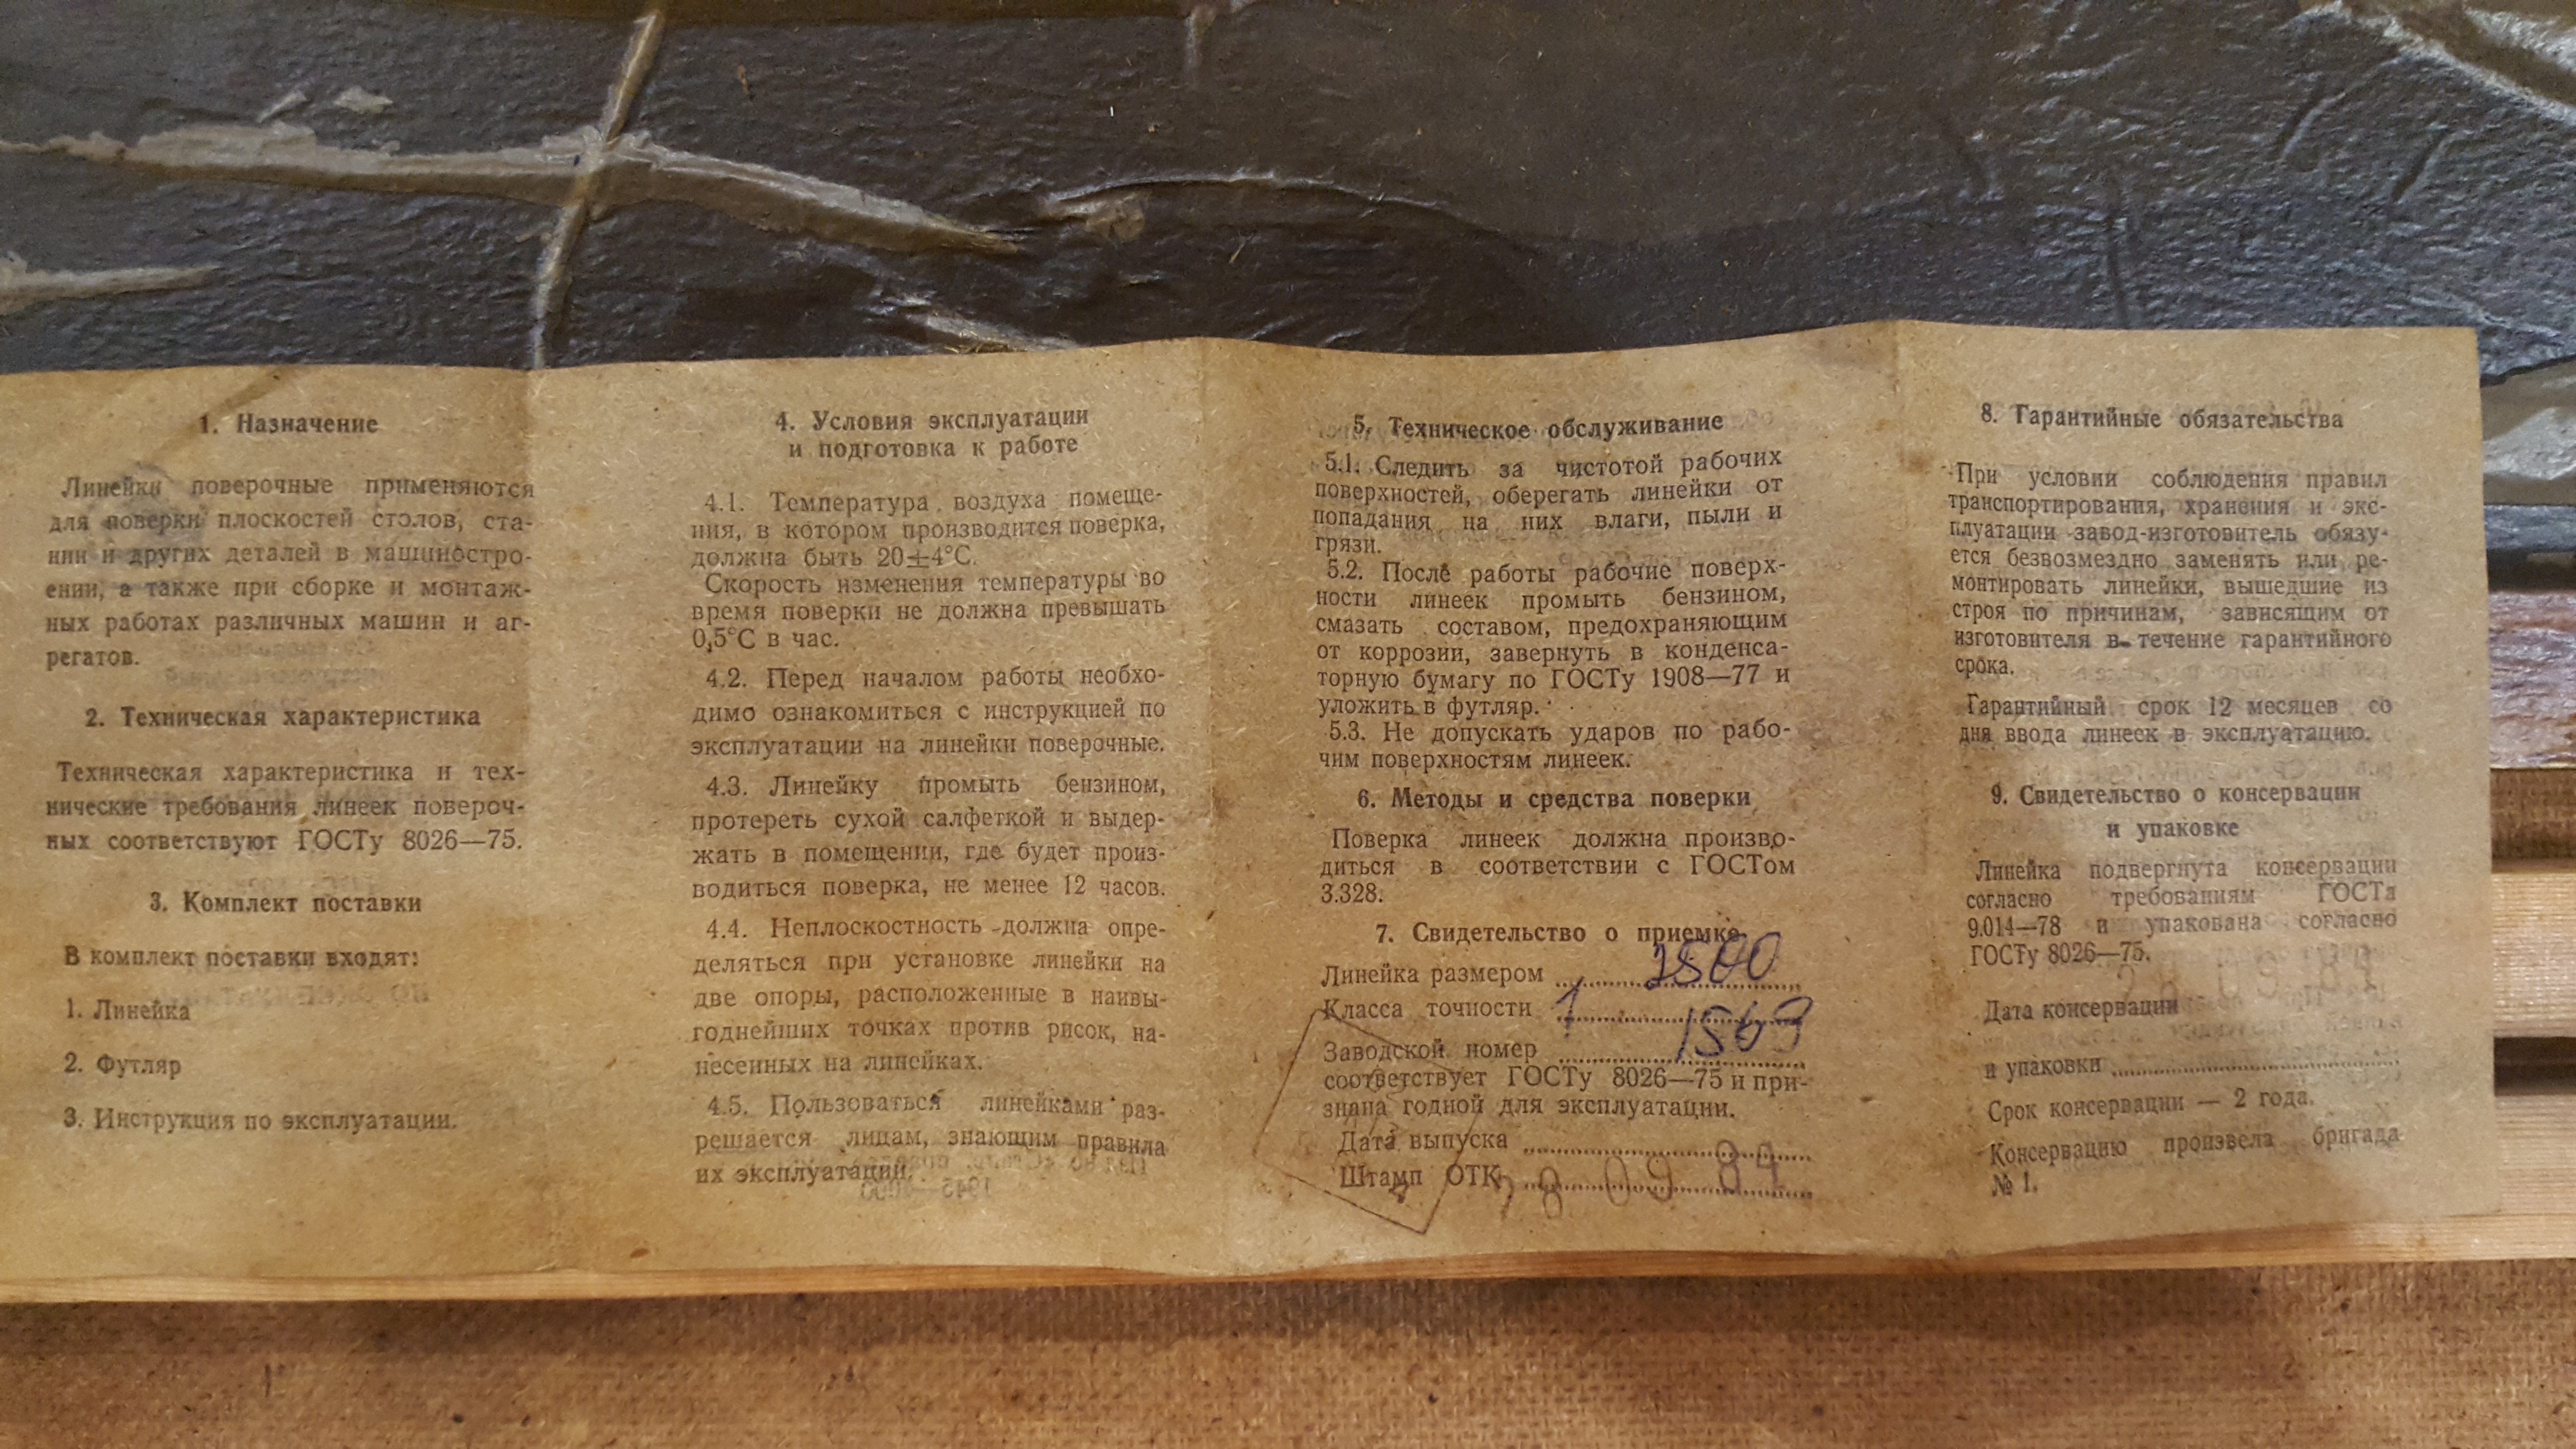 1. Назначение
Линейки поверочные применяются
для поверки плоскостей столов, ста-
нин и других деталей в машиностро-
ении, а также при сборке и монтаж-
ных работах различных машин и аг-
регатов.
2. Техническая характеристика
Техническая характеристика и тех-
нические требования линеек повероч-
ных соответствуют ГОСТу 8026—75.
3. Комплект поставки
В комплект поставки входят:
1. Линейка
2. Футляр
3. Инструкция по эксплуатации.
4. Условия эксплуатации
и подготовка к работе
4.1. Температура воздуха помеще-
ния, в котором производится поверка,
должна быть 20±4°С.
Скорость изменения температуры во
время поверки не должна превышать
0,5°С в час.
4.2. Перед началом работы необхо-
димо ознакомиться с инструкцией по
эксплуатации на линейки поверочные.
4.3. Линейку промыть бензином,
протереть сухой салфеткой и выдер-
жать в помещении, где будет произ-
водиться поверка, не менее 12 часов.
4.4. Неплоскостность должна опре-
деляться при установке линейки на
две опоры, расположенные в наивы-
годнейших точках против рисок, на-
несенных на линейках.
4.5. Пользоваться линейками раз-
решается лицам, знающим правила
их эксплуатаций.
5. Техническое обслуживание
5.1. Следить за чистотой рабочих
поверхностей, оберегать линейки от
попадания на них влаги, пыли и
грязи.
5.2. После работы рабочие поверх-
ности линеек промыть бензином,
смазать составом, предохраняющим
от коррозии, завернуть в конденса-
торную бумагу по ГОСТу 1908—77 и
уложить в футляр.
5.3. Не допускать ударов по рабо-
чим поверхностям линеек.
6. Методы и средства поверки
Поверка линеек должна произво-
диться в соответствии с ГОСТом
3.328.
7. Свидетельство о приемке
Линейка размером
Класса точности 1
Заводской номер 1569
соответствует ГОСТу 8026—75 и при-
знана годной для эксплуатации.
Дата выпуска
Штамп ОТК 09 84
8. Гарантийные обязательства
При условии соблюдения правил
транспортирования, хранения и экс-
плуатации завод-изготовитель обязу-
ется безвозмездно заменять или ре-
монтировать линейки, вышедшие из
строя по причинам, зависящим от
изготовителя в течение гарантийного
срока.
Гарантийный срок 12 месяцев со
дня ввода линеек в эксплуатацию.
9. Свидетельство о консервации
и упаковке
Линейка подвергнута консервации
согласно требованиям ГОСТа
9.014—78 и упакована согласно
ГОСТу 8026—75.
Дата консервации
и упаковки
Срок консервации — 2 года.
Консервацию произвела бригада
№ 1.